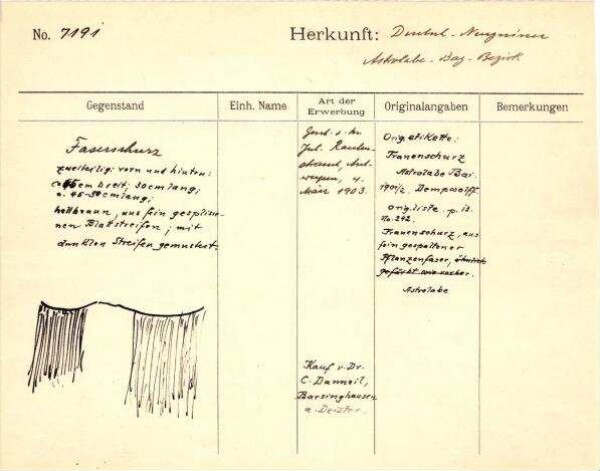 No. 7191
Herkunft: Deutsch-Neuguinea
Astrolabe-Bay-Bezirk
Gegenstand
Einh. Name
Art der
Erwerbung
Originalangaben
Bemerkungen
Faserschurz
zweiteilig: vorn und hinten:
breit; 30cm lang;
45-50cm lang;
hellbraun, aus fein gesplisse-
nen Blattstreifen; mit
dunklen Streifen gemustert.
Gesch. v. Hr.
Jul.
Ant-
werpen, 4.
März 1903.
Kauf v. Dr.
C. Danneil,
Barsinghausen
a. Deister.
Orig. etikette:
Frauenschurz
Astrolabe Bai.
1901/2. Dempwolff
Orig. liste. p. 13.
No. 242.
Frauenschurz, aus
fein gespaltener
Pflanzenfaser, ähnlich
gefärbt wie vorher.
Astrolabe